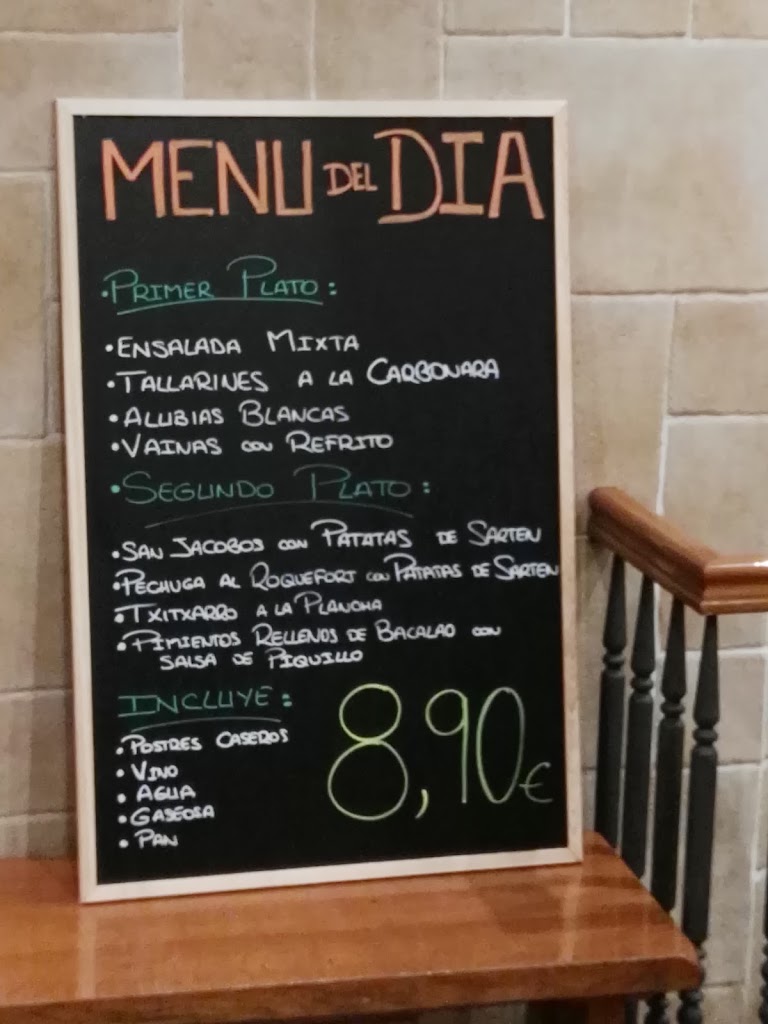 MENU DEL DIA
•PRIMER PLATO:
•ENSALADA MIXTA
•TALLARINES A LA CARBONARA
•ALUBIAS BLANCAS
•VAINAS CON REFRITO
•SEGUNDO PLATO:
•SAN JACOBOS CON PATATAS DE SARTEN
•PECHUGA AL ROQUEFORT CON PATATAS DE SARTEN
•TXITXARRO A LA PLANCHA
•PIMIENTOS RELLENOS DE BACALAO CON
SALSA DE PIQUILLO
INCLUYE:
•POSTRES CASEROS
•VINO
•AGUA
•GASEOSA
•PAN
8,90€